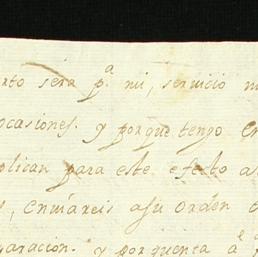 rto será p.ª mi, servicio m
ocasiones. y porque tengo en
plican para este efecto a
s, enviareis a su orden
aracion. y por quenta a